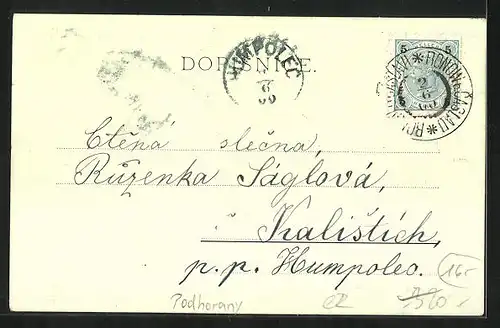 DOPISNICE.
HUMPOLEC
6
5 5
RONOV ČÁSLAU
2
6
Ctěná slečna,
Růženka Ságlová,
Kalištích,
p. p. Humpolec.
Podhorany
CZ
16.-